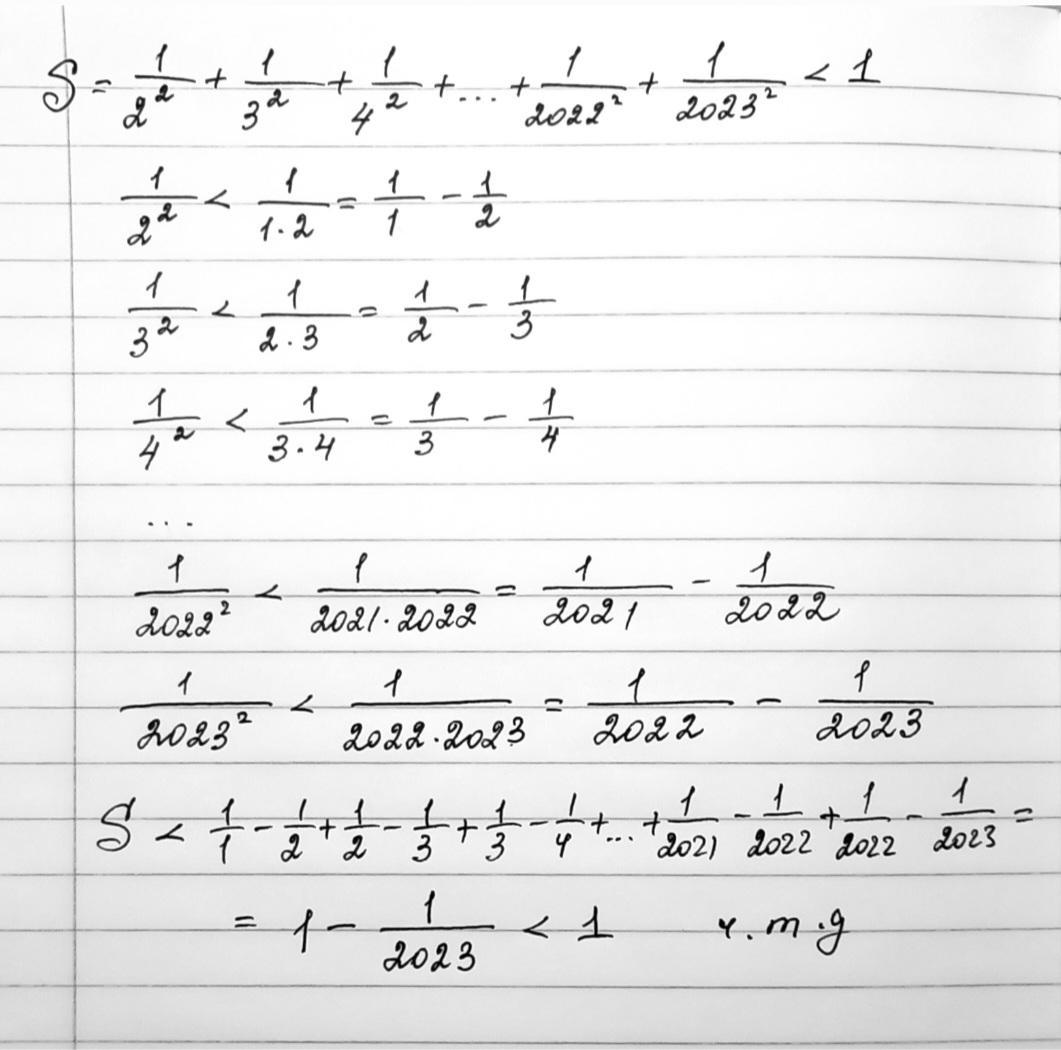 S = 1/2² + 1/3² + 1/4² + ... + 1/2022² + 1/2023² < 1
1/2² < 1/(1·2) = 1/1 - 1/2
1/3² < 1/(2·3) = 1/2 - 1/3
1/4² < 1/(3·4) = 1/3 - 1/4
...
1/2022² < 1/(2021·2022) = 1/2021 - 1/2022
1/2023² < 1/(2022·2023) = 1/2022 - 1/2023
S < 1/1 - 1/2 + 1/2 - 1/3 + 1/3 - 1/4 + ... + 1/2021 - 1/2022 + 1/2022 - 1/2023 =
= 1 - 1/2023 < 1 ч.т.д